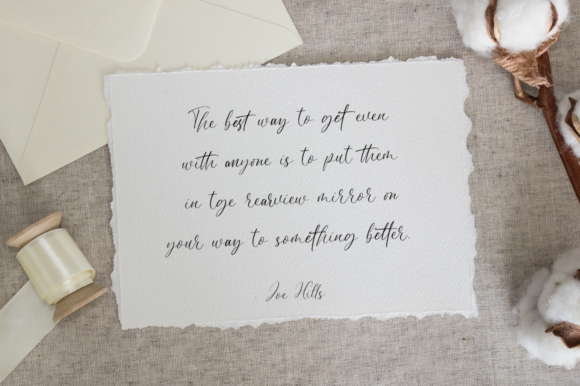 The best way to get even
with anyone is to put them
in tge rearview mirror on
your way to something better.
Joe Hills